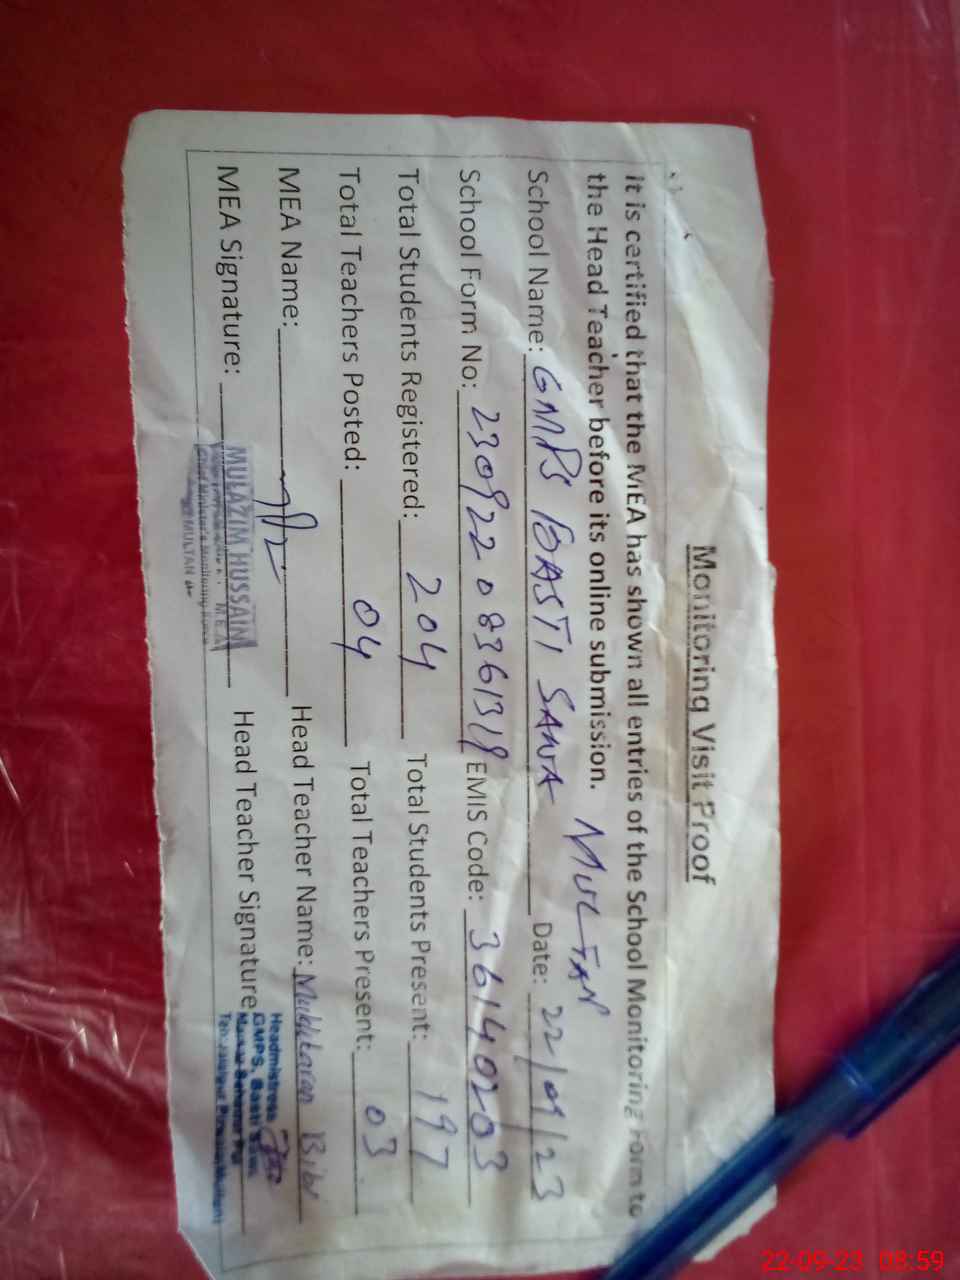 Monitoring Visit Proof
it is certified that the MEA has shown all entries of the School Monitoring Form to
the Head Teacher before its online submission.
MULTAN
School Name: GMPS BASTI SAWA Date: 22/09/23
School Form No: 23092208361319 EMIS Code: 36140203
Total Students Registered: 204 Total Students Present: 197
Total Teachers Posted: 04 Total Teachers Present: 03
MEA Name: Head Teacher Name: Mukhtaran Bibi
MEA Signature: Head Teacher Signature
MULAZIM HUSSAIN
M.E.A
MULTAN
Headmistress
GMPS, Basti
22-09-23 08:59